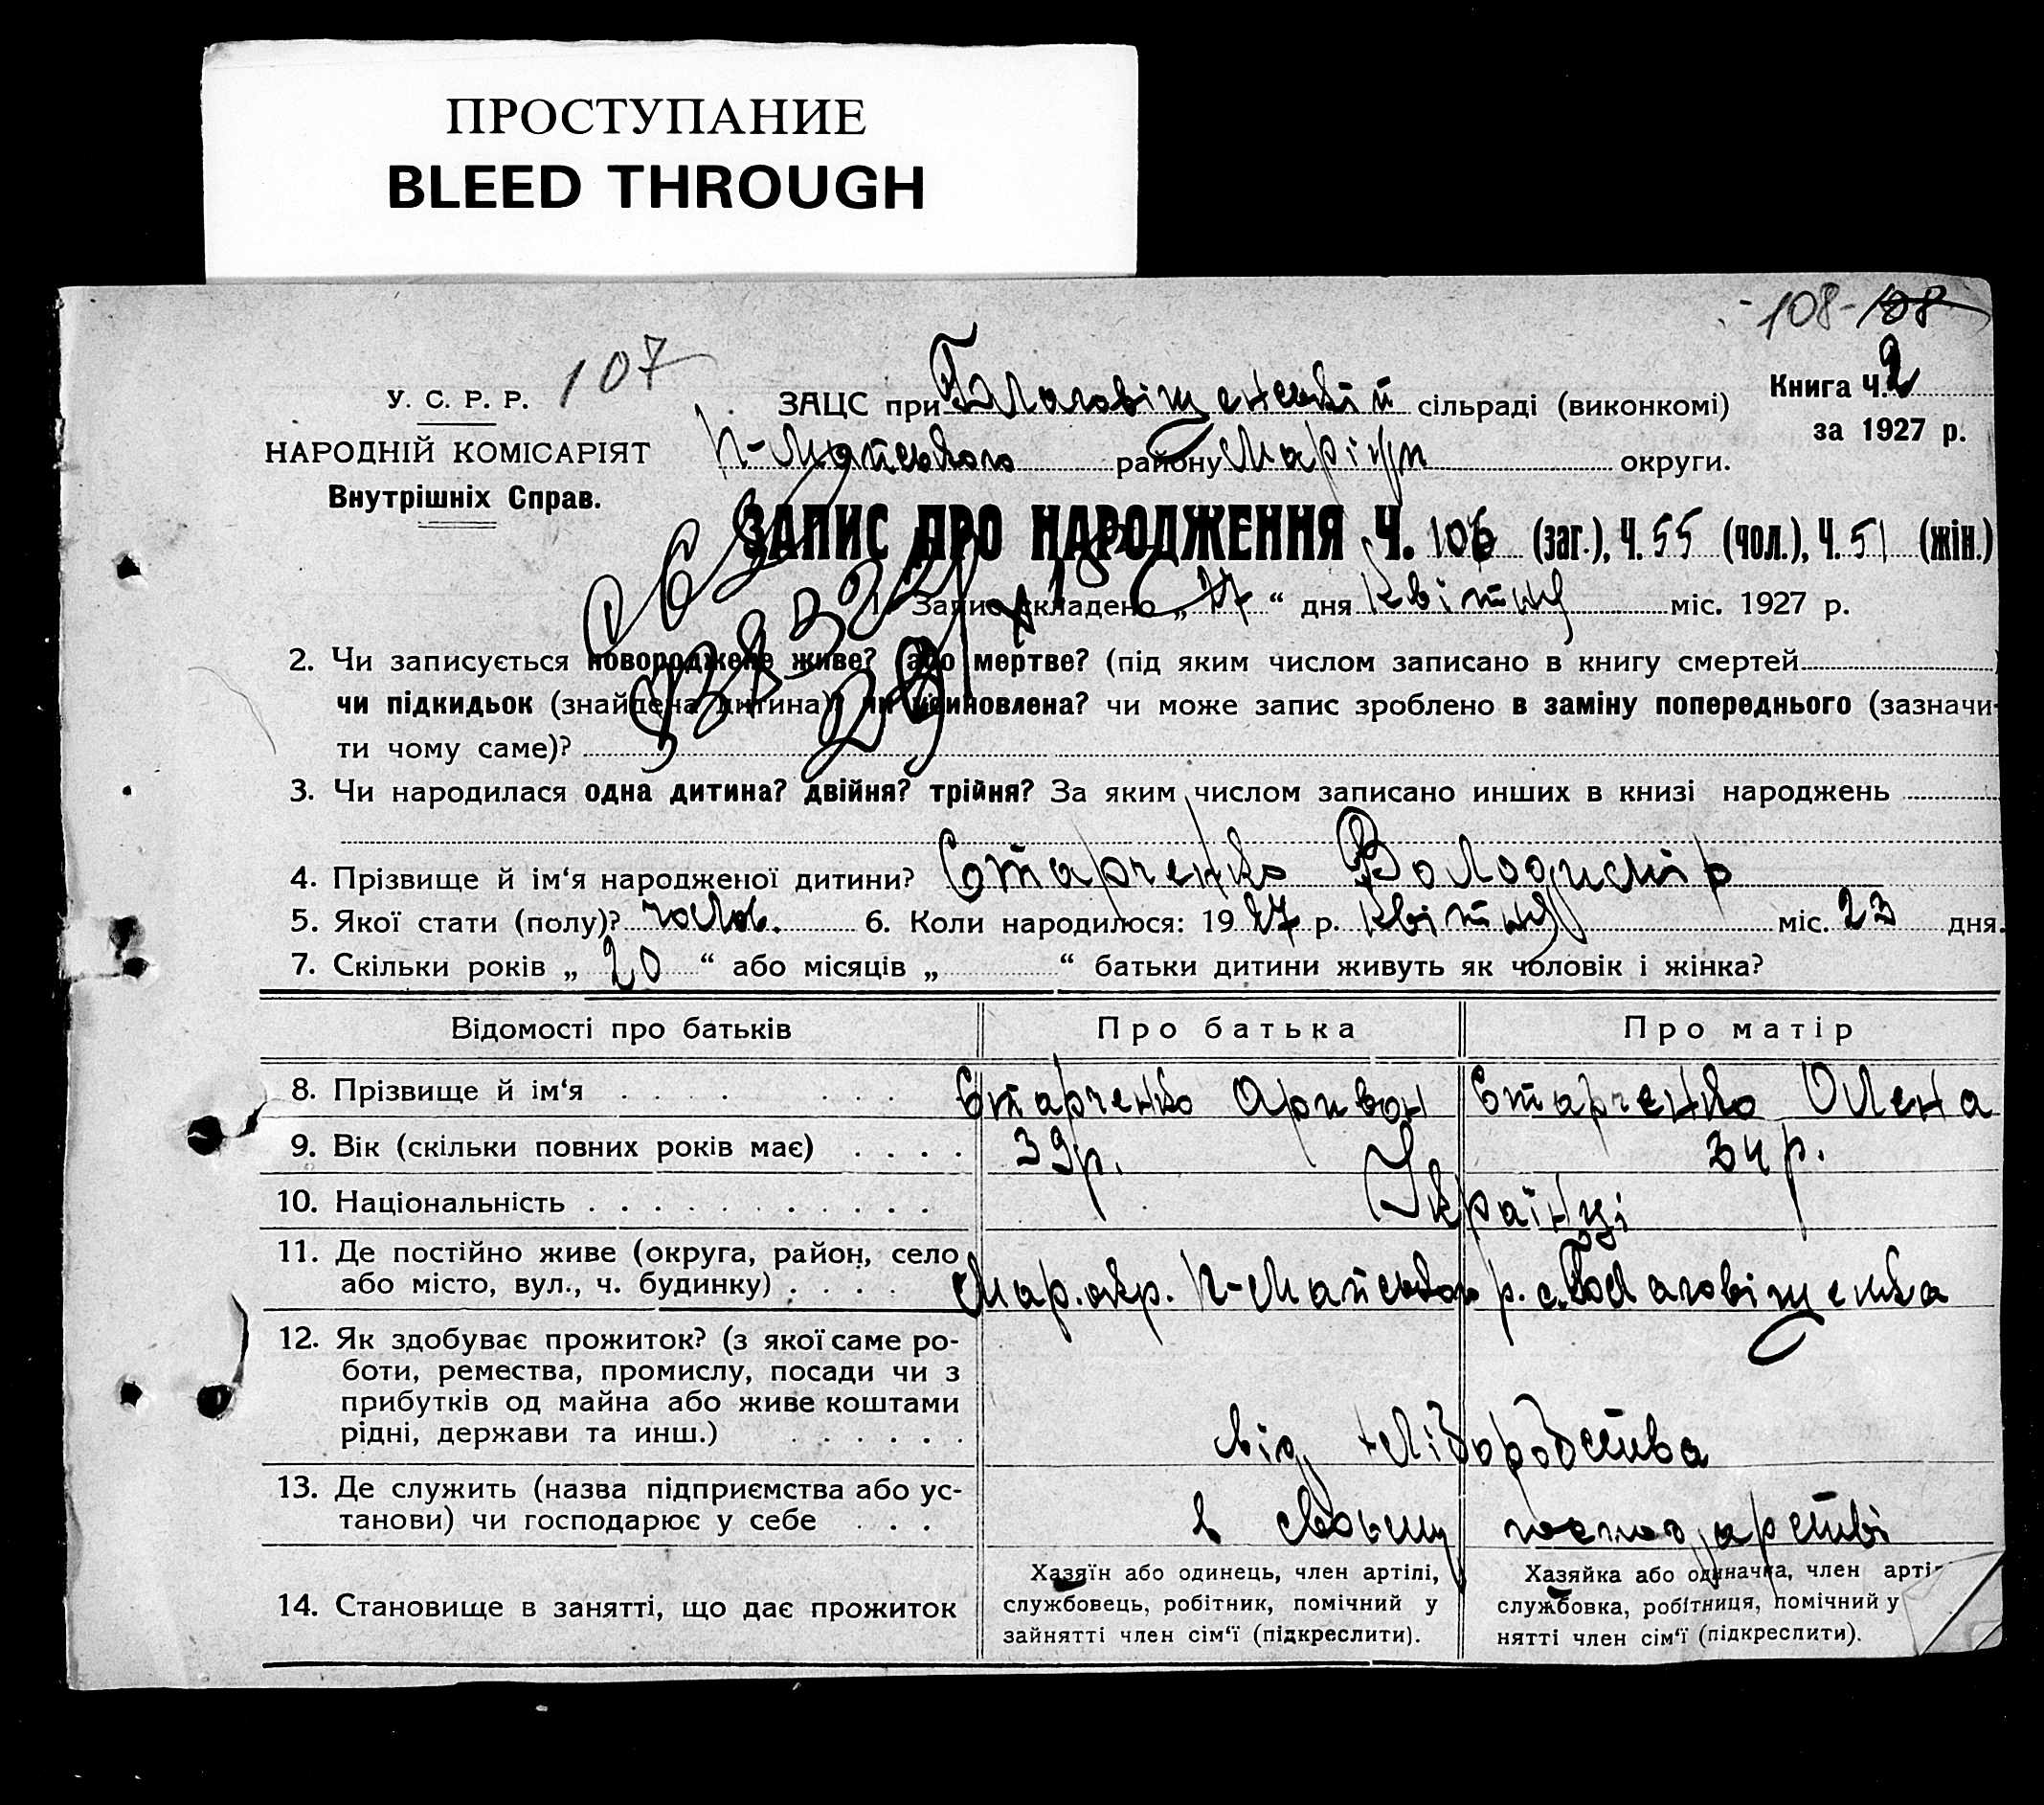 ПРОСТУПАНИЕ
BLEED THROUGH
-108-108
107
У. С. Р. Р.
НАРОДНІЙ КОМІСАРІЯТ
Внутрішніх Справ.
Книга Ч. 2
за 1927 р.
ЗАЦС при Благовіщенській сільраді (виконкомі)
П-Майського району Маріуп округи.
ЗАПИС ПРО НАРОДЖЕННЯ Ч. 106 (заг.), Ч. 55 (чол.), Ч. 51 (жін.)
1. Запис складено „27“ дня Квітня міс. 1927 р.
2. Чи записується новороджене живе? або мертве? (під яким числом записано в книгу смертей )
чи підкидьок (знайдена дитина) чи усиновлена? чи може запис зроблено в заміну попереднього (зазначи-
ти чому саме)?
3. Чи народилася одна дитина? двійня? трійня? За яким числом записано инших в книзі народжень
4. Прізвище й ім‘я народженої дитини? Старченко Володимір
5. Якої стати (полу)? чолов. 6. Коли народилося: 1927 р. Квітня міс. 23 дня.
7. Скільки років „ 20 “ або місяців „ “ батьки дитини живуть як чоловік і жінка?
Відомості про батьків Про батька Про матір
8. Прізвище й ім‘я Старченко Аривон Старченко Олена
9. Вік (скільки повних років має) 39р. 34 р.
10. Національність Українці
11. Де постійно живе (округа, район, село
або місто, вул., ч. будинку) Мар. окр. П-Майського р. с. Благовіщенка
12. Як здобуває прожиток? (з якої саме ро-
боти, ремества, промислу, посади чи з
прибутків од майна або живе коштами
рідні, держави та инш.) від хліборобства
13. Де служить (назва підприємства або ус-
танови) чи господарює у себе в своьму господарстві
14. Становище в занятті, що дає прожиток
Хазяїн або одинець, член артілі,
службовець, робітник, помічний у
зайнятті член сім‘ї (підкреслити).
Хазяйка або одиначка, член арті-
службовка, робітниця, помічний у
нятті член сім‘ї (підкреслити).